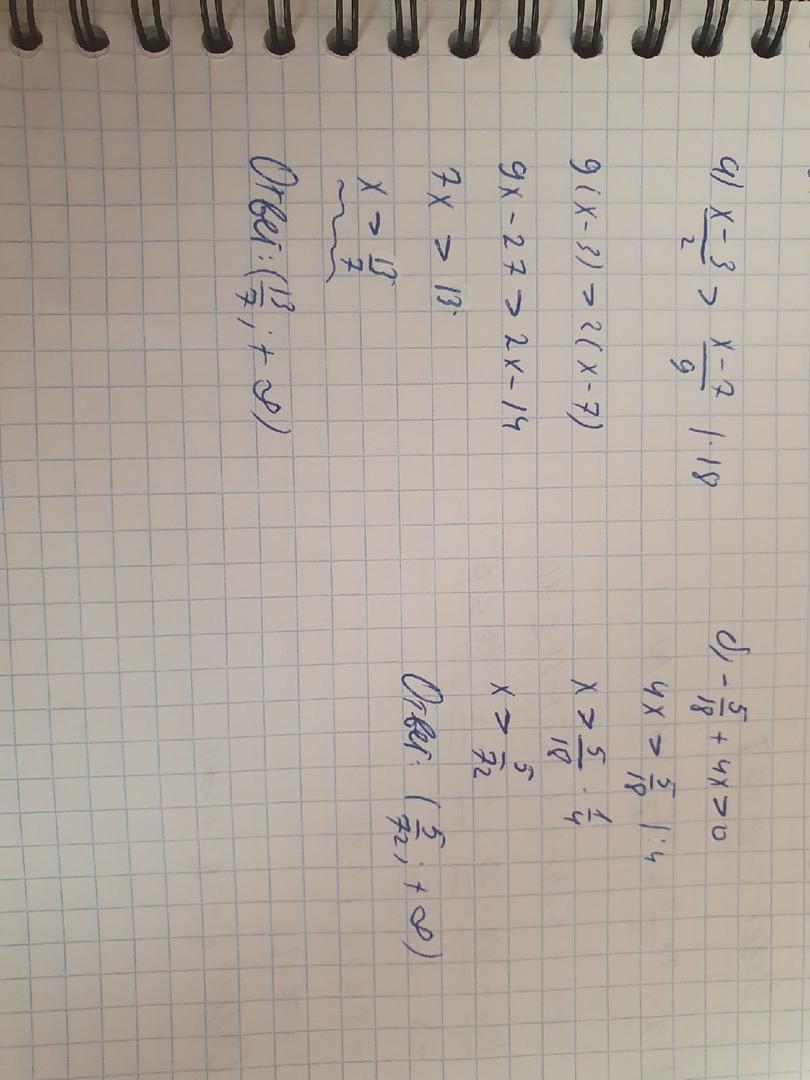 4) x-3/2 > x-7/9 |·18
9(x-3) > 2(x-7)
9x-27 > 2x-14
7x > 13
x > 13/7
Ответ: (13/7; +∞)
d) -5/18 + 4x > 0
4x > 5/18 |:4
x > 5/18 · 1/4
x > 5/72
Ответ: (5/72; +∞)